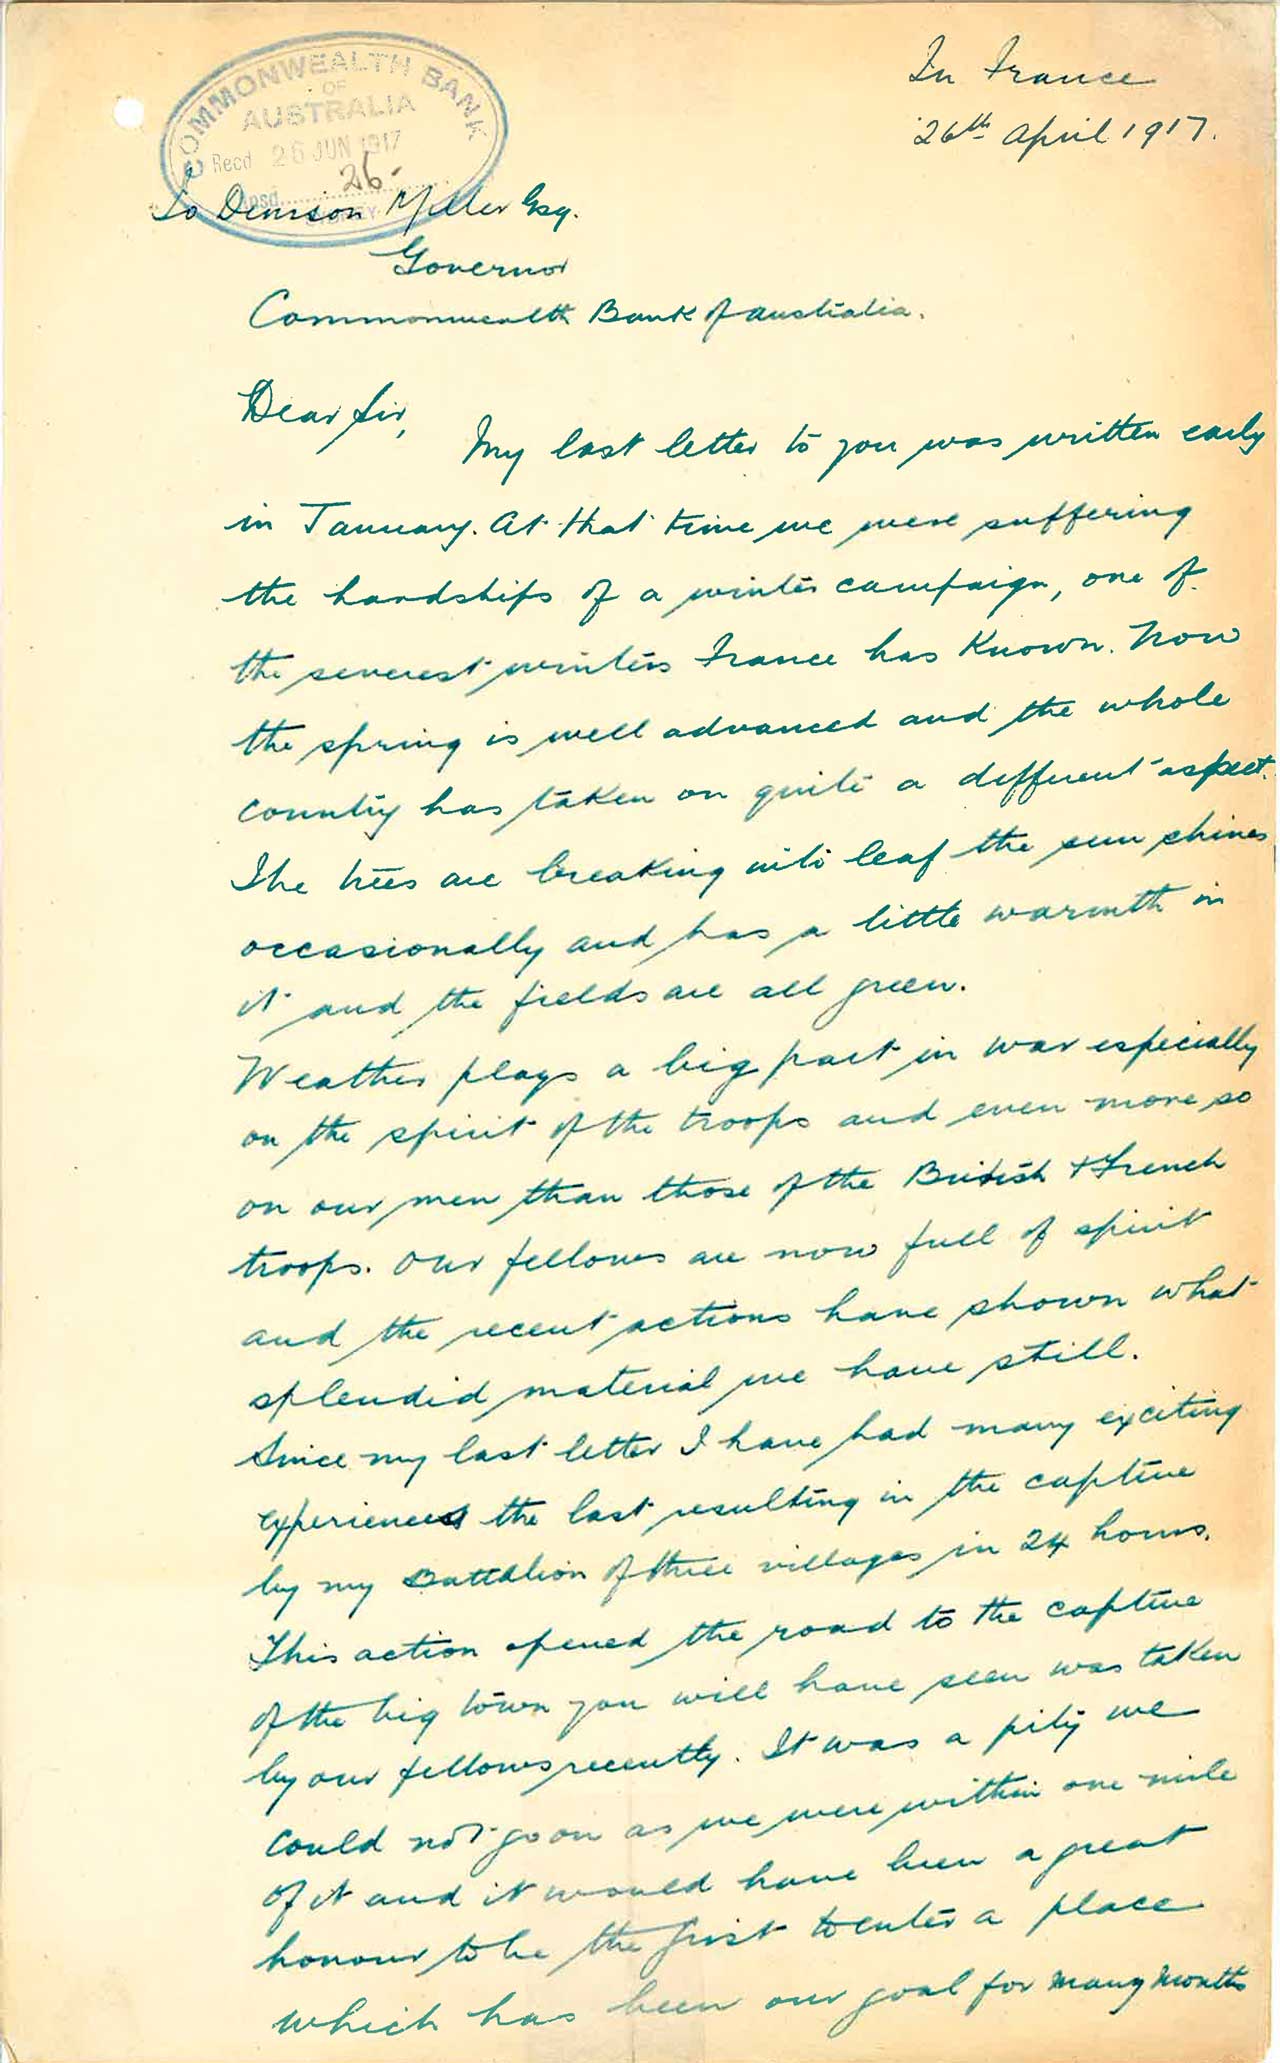 In France
26th April 1917.
COMMONWEALTH BANK
OF
AUSTRALIA
Recd 26 JUN 1917
26.
SYDNEY
To Denison Miller Esq.
Governor
Commonwealth Bank of Australia.
Dear Sir,
My last letter to you was written early
in January. At that time we were suffering
the hardships of a winter campaign, one of
the severest winters France has known. Now
the spring is well advanced and the whole
country has taken on quite a different aspect.
The trees are breaking into leaf the sun shines
occasionally and has a little warmth in
it and the fields are all green.
Weather plays a big part in war especially
on the spirit of the troops and even more so
on our men than those of the British & French
troops. Our fellows are now full of spirit
and the recent actions have shown what
splendid material we have still.
Since my last letter I have had many exciting
experiences the last resulting in the capture
by my Battalion of three villages in 24 hours.
This action opened the road to the capture
of the big town you will have seen was taken
by our fellows recently. It was a pity we
could not go on as we were within one mile
of it and it would have been a great
honour to be the first to enter a place
which has been our goal for many months